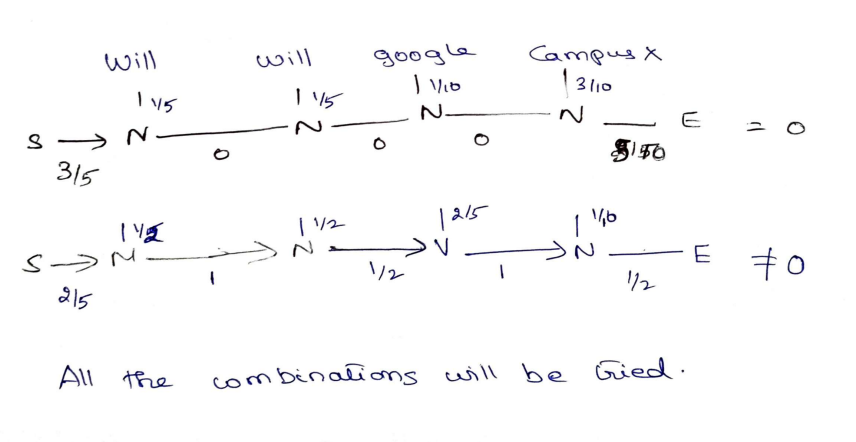 Will will google CampusX
1/5 1/5 1/10 3/10
S → N N N N E = 0
3/5 0 0 0
1/2 2/5 1/10
S → M → N → V → N E ≠ 0
2/5 1 1/2 1 1/2
All the combinations will be tried.